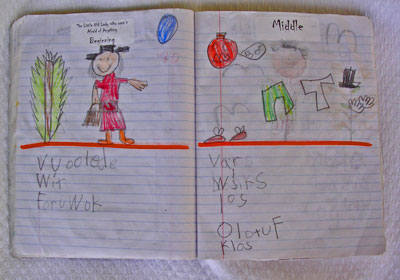 The Little Old Lady Who wasn't
Afraid of Anything
Beginning
Vuoolede
Wir
foruWok
Middle
Var
Wsirs
los
OlotuF
Klos